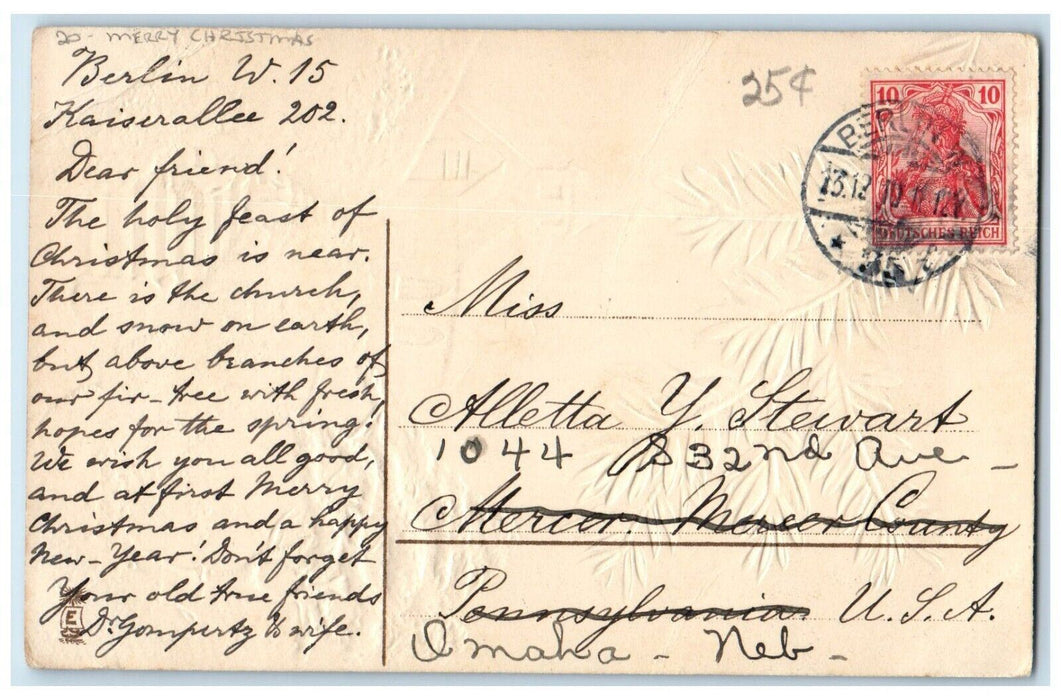 20 - MERRY CHRISTMAS
Berlin W. 15
Kaiserallee 202.
Dear friend!
The holy feast of
Christmas is near.
There is the church,
and snow on earth,
but above branches of
our fir-tree with fresh
hopes for the spring!
We wish you all good,
and at first Merry
Christmas and a happy
New-Year! Don't forget
Your old true friends
Dr. Gompertz & wife.
E
25¢
10 10
DEUTSCHES REICH
BERLIN
13.12.10
* 35
Miss
Alletta Y. Stewart
1044 S 32nd Ave -
Mercer. Mercer County
Pennsylvania. U.S.A.
Omaha - Neb -